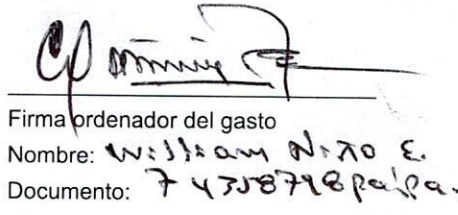 Firma ordenador del gasto
Nombre: William Nizo E.
Documento: 74358798 Paipa.